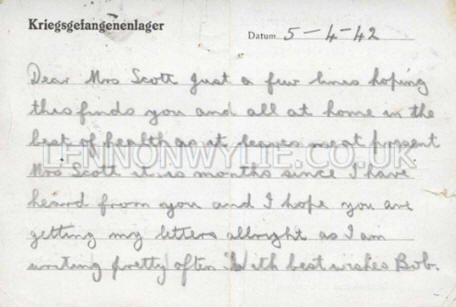 Kriegsgefangenenlager
Datum 5-4-42
Dear Mrs Scott Just a few lines hoping
this finds you and all at home in the
best of health as it leaves me at present
LENNONWYLIE.CO.UK
Mrs Scott it is months since I have
heard from you and I hope you are
getting my letters allright as I am
writing pretty often With best wishes Bob.